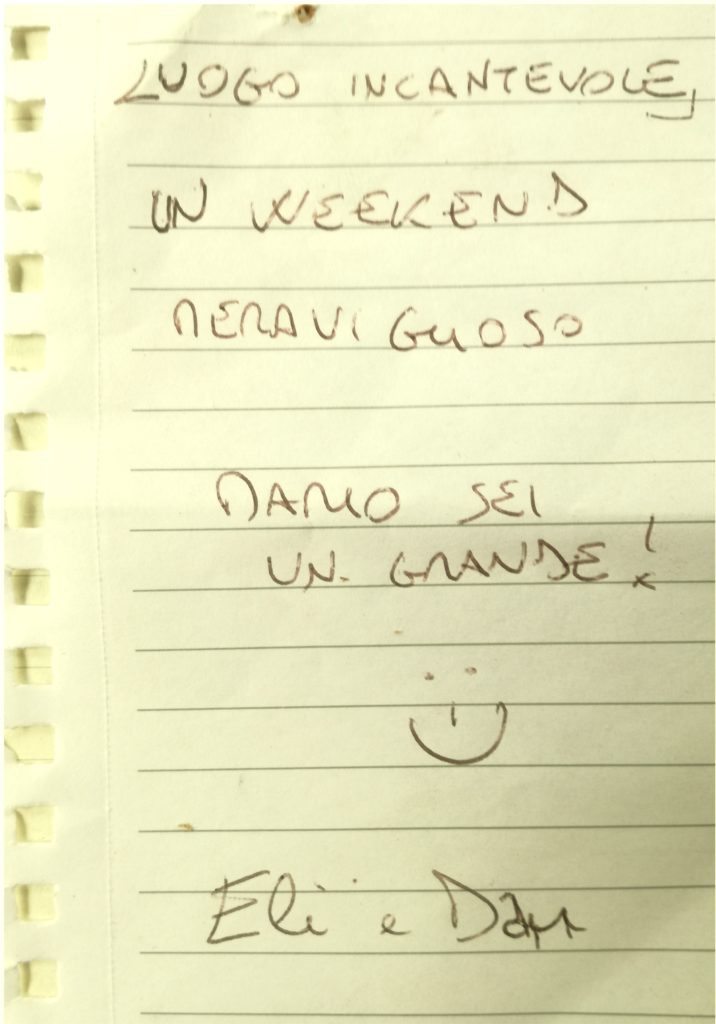 LUOGO INCANTEVOLE,
UN WEEKEND
MERAVIGLIOSO
MARIO SEI
UN GRANDE!
Eli e